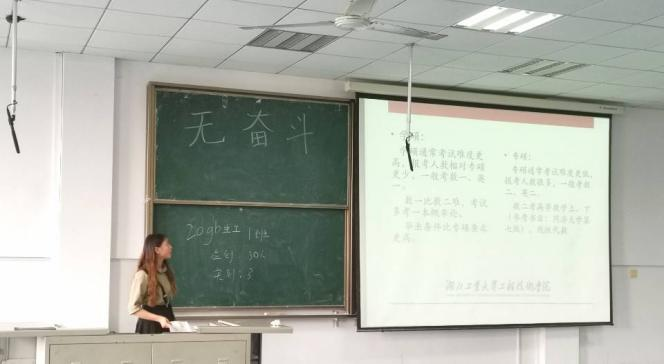 无奋斗
20gb生工 1班
应到：30人
实到：3
• 学硕：
学硕通常考试难度更
高，报考人数相对专硕
更少，一般考数一、英一
。
数一比数二难，考试
多考一本概率论。
毕业条件比专硕要求
更高。
• 专硕：
专硕通常考试难度更低，
报考人数很多，一般考数
二、英二。
数二考高等数学上、下
（参考书目：同济大学第
七版），线性代数
湖北工业大学工程技术学院